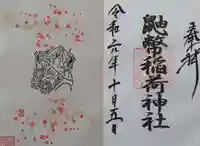 奉拝
鼬幣稲荷神社
令和六年十月五日